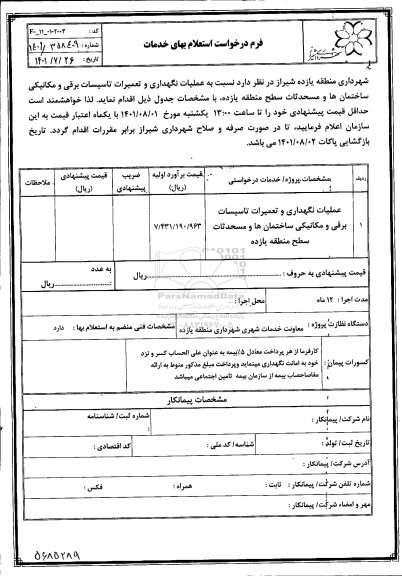 فرم درخواست استعلام بهای خدمات
کد : F-۱۱-۰۱-۲۰۰۳
شماره : ۱۴۰۱/۳۵۸۴۰۹
تاریخ : ۱۴۰۱/۷/۲۶
شهرداری منطقه یازده شیراز در نظر دارد نسبت به عملیات نگهداری و تعمیرات تاسیسات برقی و مکانیکی
ساختمان ها و مسحدثات سطح منطقه یازده، با مشخصات جدول ذیل اقدام نماید. لذا خواهشمند است
حداقل قیمت پیشنهادی خود را تا ساعت ۱۳:۰۰ یکشنبه مورخ ۱۴۰۱/۰۸/۰۱ با یکماه اعتبار قیمت به این
سازمان اعلام فرمایید، تا در صورت صرفه و صلاح شهرداری شیراز برابر مقررات اقدام گردد. تاریخ
بازگشایی پاکات ۱۴۰۱/۰۸/۰۲ می باشد.
ردیف مشخصات پروژه/ خدمات درخواستی قیمت برآورد اولیه (ریال) ضریب پیشنهادی قیمت پیشنهادی (ریال) ملاحظات
۱ عملیات نگهداری و تعمیرات تاسیسات برقی و مکانیکی ساختمان ها و مسحدثات سطح منطقه یازده ۷/۴۳۱/۱۹۰/۹۶۳
قیمت پیشنهادی به حروف : ریال به عدد : ریال
مدت اجرا : ۱۲ ماه محل اجرا :
دستگاه نظارت پروژه : معاونت خدمات شهری شهرداری منطقه یازده مشخصات فنی منضم به استعلام بها : دارد
کسورات پیمان : کارفرما از هر پرداخت معادل ۵٪ بیمه به عنوان علی الحساب کسر و نزد
خود به امانت نگهداری مینماید وپرداخت مبلغ مذکور منوط به ارائه
مفاصاحساب بیمه از سازمان بیمه تامین اجتماعی میباشد
مشخصات پیمانکار
نام شرکت/ پیمانکار : شماره ثبت/ شناسنامه :
تاریخ ثبت/ تولد : شناسه/ کد ملی : کد اقتصادی :
آدرس شرکت/ پیمانکار :
شماره تلفن شرکت/ پیمانکار : ثابت : همراه : فکس :
مهر و امضاء شرکت/ پیمانکار :
۵۶۸۵۲۸۹